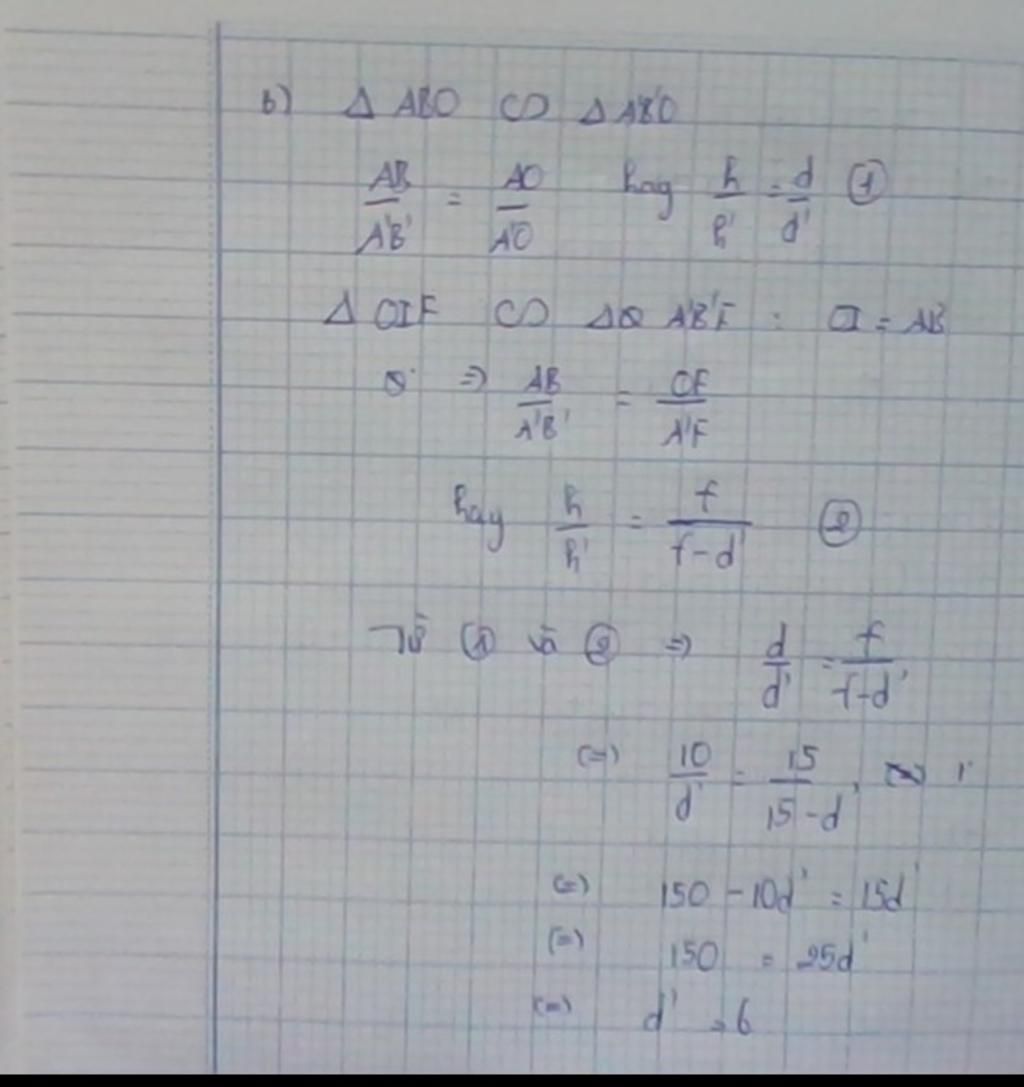 b) Δ ABO ∽ Δ A'B'O
AB/A'B' = AO/A'O hay h/h' = d/d' ①
Δ OIF ∽ Δ A'B'F : OI = AB
=> AB/A'B' = OF/A'F
hay h/h' = f/(f-d') ②
Từ ① và ② => d/d' = f/(f-d')
(=) 10/d' = 15/(15-d')
(=) 150 - 10d' = 15d'
(=) 150 = 25d'
(=) d' = 6